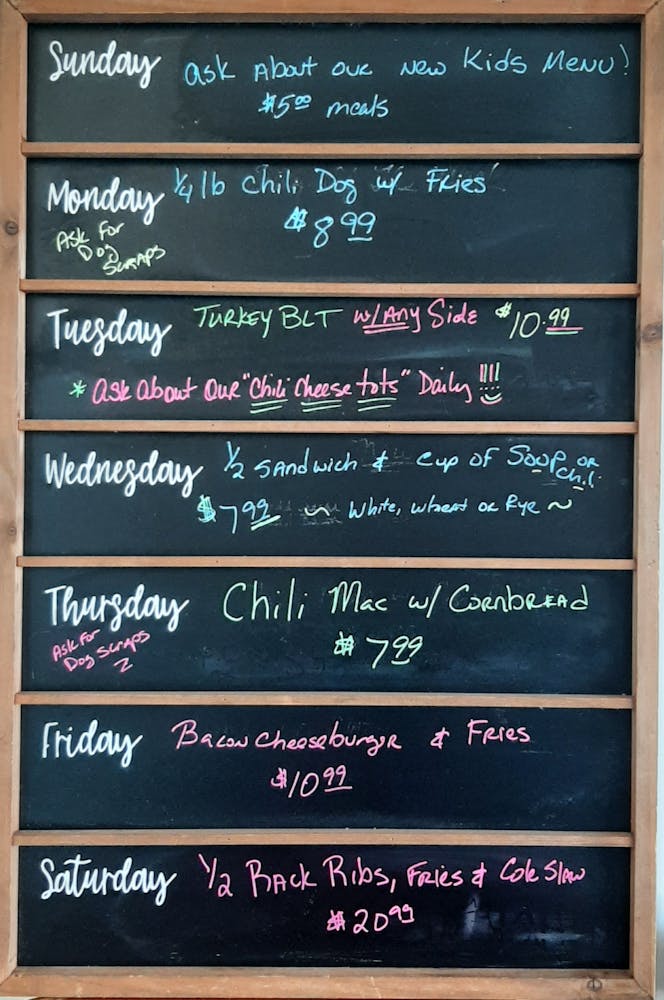 Sunday Ask About our new Kids Menu!
$5.00 meals
Monday 1/4 lb Chili Dog w/ Fries
$8.99
Ask For
Dog
Scraps
Tuesday Turkey BLT w/Any Side $10.99
* Ask About Our "Chili Cheese tots" Daily !!!!
Wednesday 1/2 Sandwich & Cup of Soup or
Chili
$7.99 ~ White, Wheat or Rye ~
Thursday Chili Mac w/ Cornbread
$7.99
Ask For
Dog Scraps
Friday Bacon Cheeseburger & Fries
$10.99
Saturday 1/2 Rack Ribs, Fries & Cole Slaw
$20.99